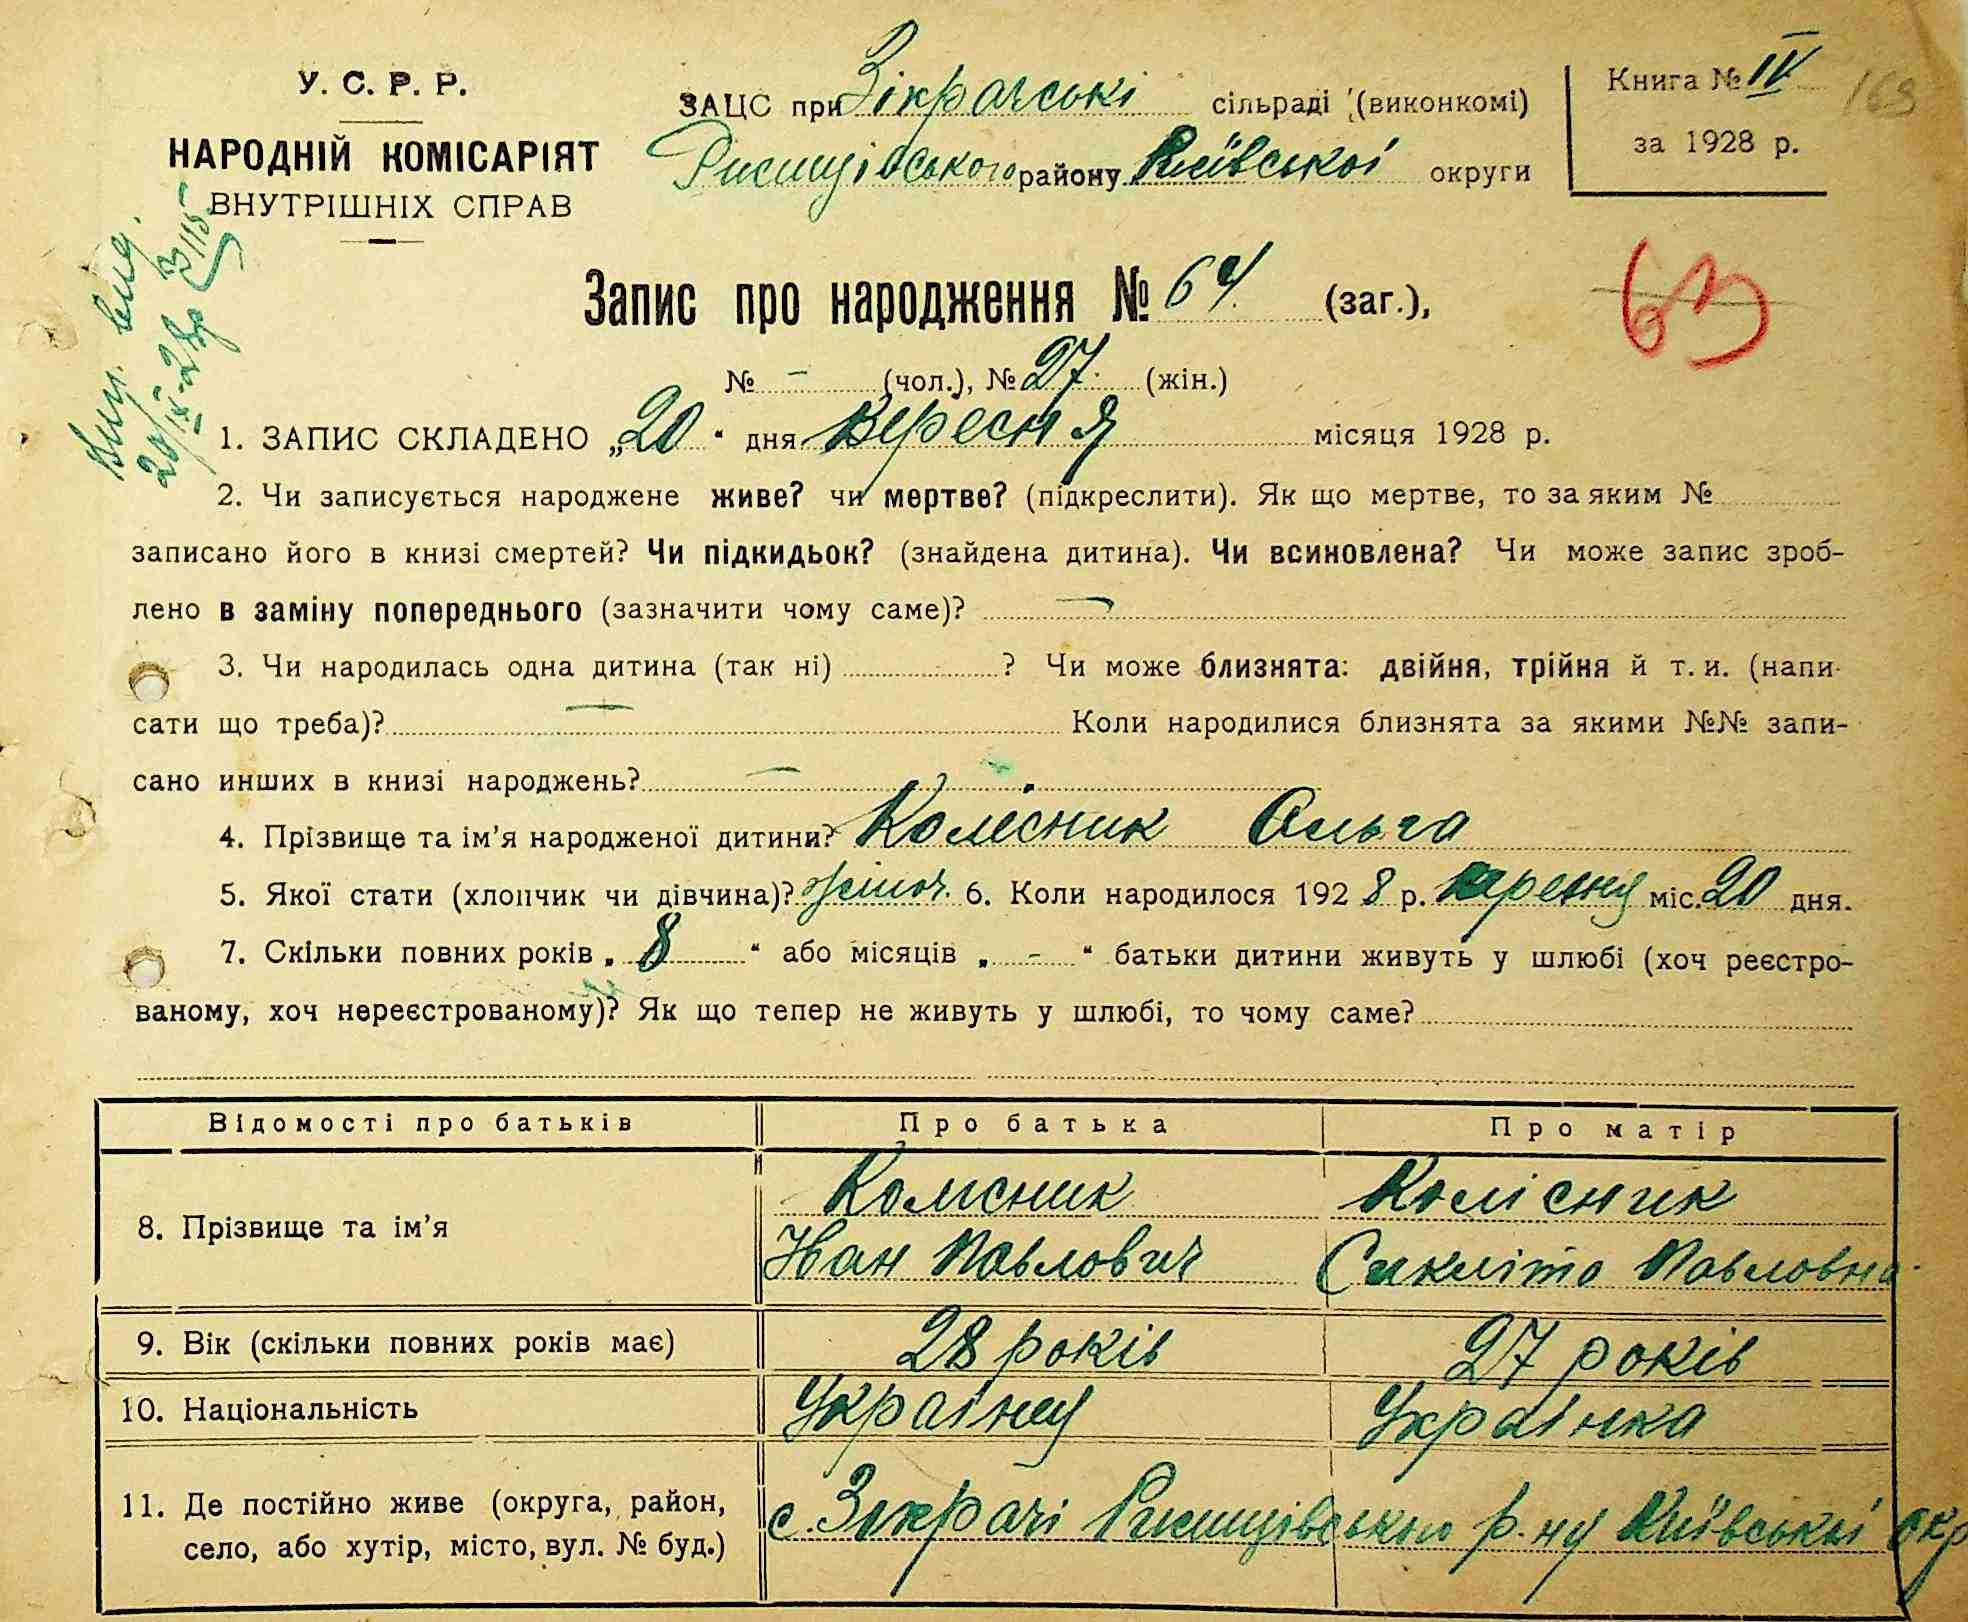 У. С. Р. Р.
НАРОДНІЙ КОМІСАРІЯТ
ВНУТРІШНІХ СПРАВ
ЗАЦС при Зікрачські сільраді (виконкомі)
Ржищівського району Київської округи
Книга № IV
за 1928 р.
169
63
Запис про народження № 64 (заг.),
№ - (чол.), № 27. (жін.)
1. ЗАПИС СКЛАДЕНО „20“ дня вересня місяця 1928 р.
2. Чи записується народжене живе? чи мертве? (підкреслити). Як що мертве, то за яким №
записано його в книзі смертей? Чи підкидьок? (знайдена дитина). Чи всиновлена? Чи може запис зроб-
лено в заміну попереднього (зазначити чому саме)? —
3. Чи народилась одна дитина (так ні) ? Чи може близнята: двійня, трійня й т. и. (напи-
сати що треба)? — Коли народилися близнята за якими №№ запи-
сано инших в книзі народжень? —
4. Прізвище та ім'я народженої дитини? Колісник Ольга
5. Якої стати (хлопчик чи дівчина)? жіноч. 6. Коли народилося 1928 р. вересня міс. 20 дня.
7. Скільки повних років „8“ або місяців „-“ батьки дитини живуть у шлюбі (хоч реєстро-
ваному, хоч нереєстрованому)? Як що тепер не живуть у шлюбі, то чому саме?
Відомості про батьків Про батька Про матір
8. Прізвище та ім'я
Колісник Колісник
Іван Павлович Сикліта Павловна
9. Вік (скільки повних років має) 28 років 27 років
10. Національність Українец Українка
11. Де постійно живе (округа, район,
село, або хутір, місто, вул. № буд.)
с. Зікрачі Ржищівського р-ну Київської окр